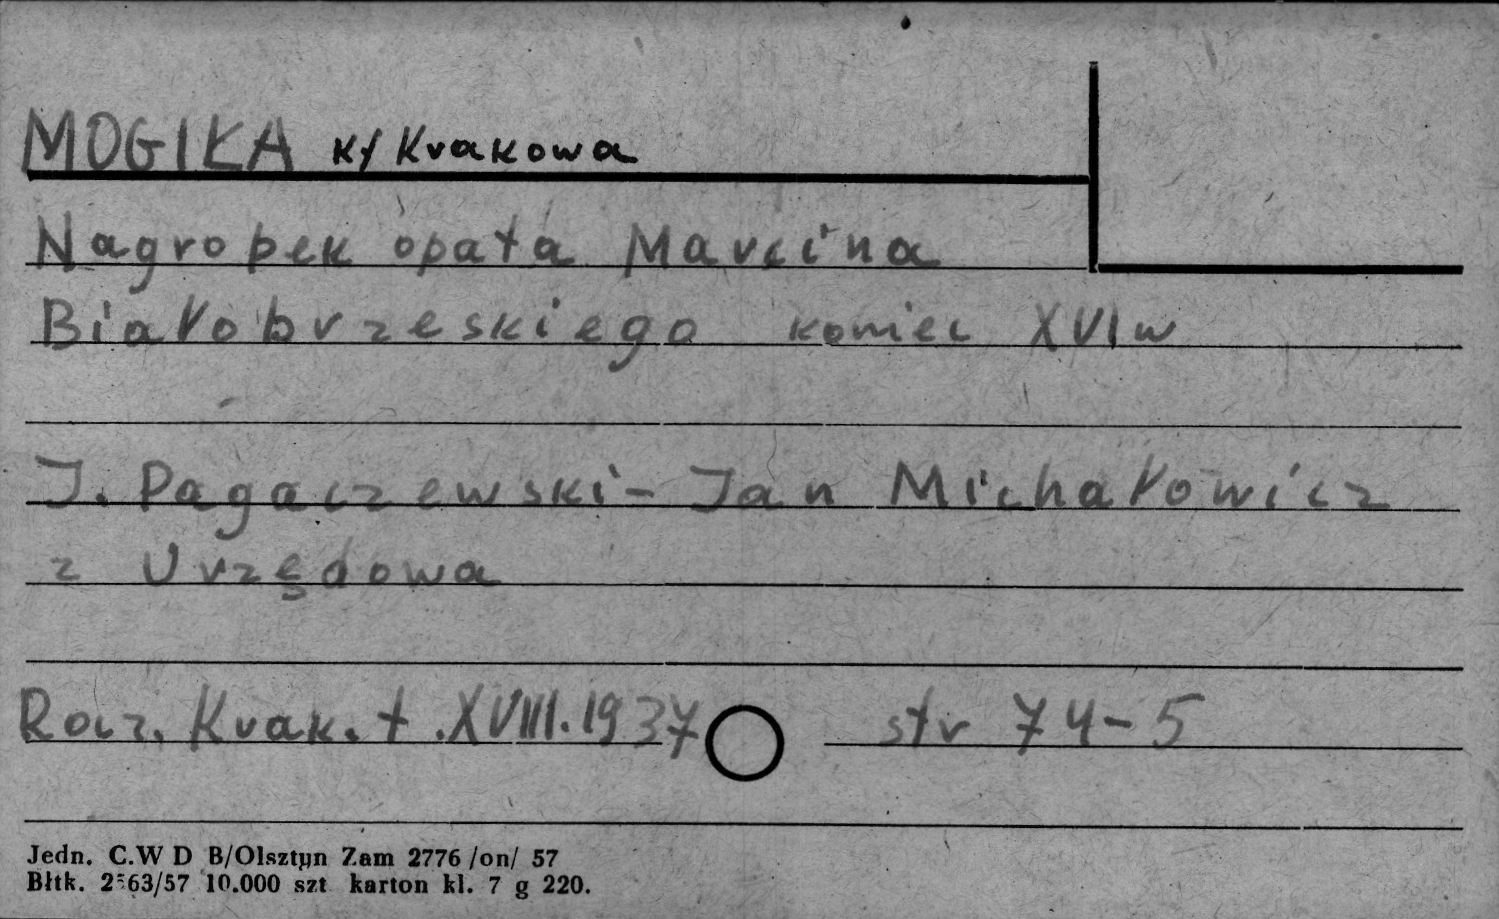 MOGIŁA k/Krakowa
Nagrobek opata Marcina
Białobrzeskiego koniec XVI w
J. Pagaczewski - Jan Michałowicz
z Urzędowa
Rocz. Krak. t. XVIII. 1937 str 74-5
Jedn. C.W D B/Olsztyn Zam 2776 /on/ 57
Błtk. 2563/57 10.000 szt karton kl. 7 g 220.